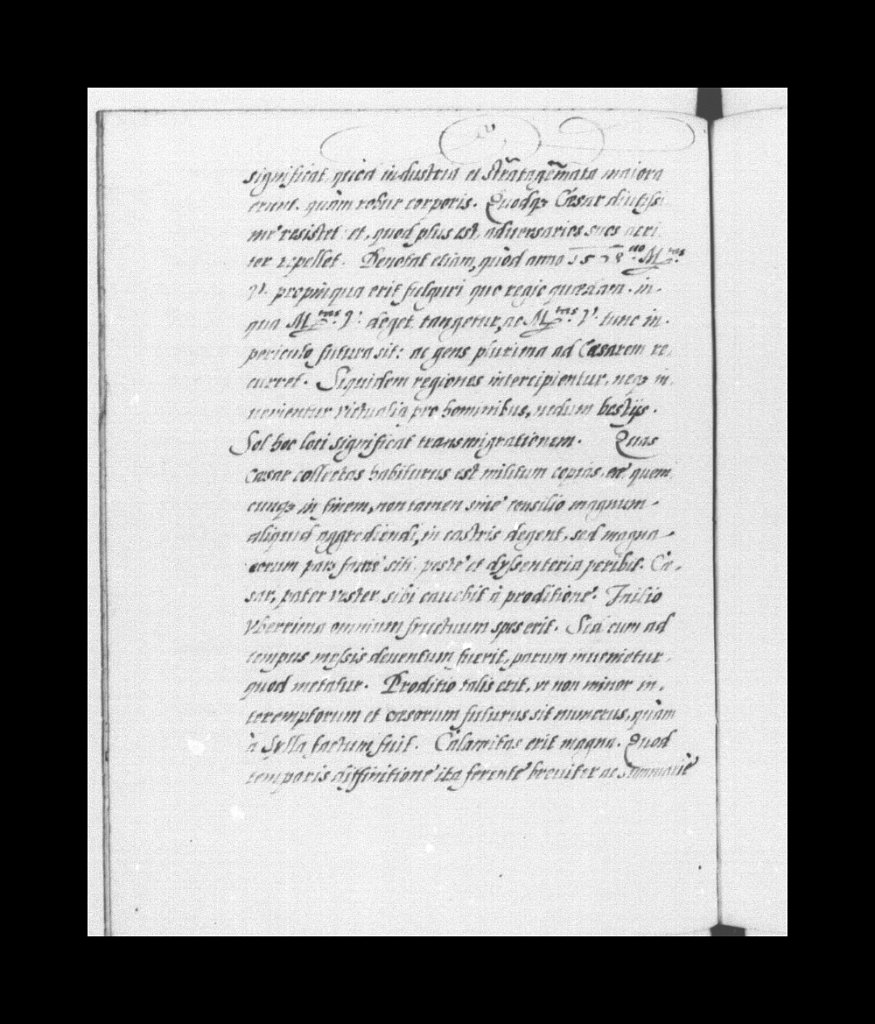 significat, quod industria et stratagemata maiora
erunt, quàm robur corporis. Quodq₃ Cæsar diutissi
me resistet et, quod plus est, aduersarios suos acri
ter repellet. Denotat etiam, quòd anno
V. propinqua erit fulguri quo regie quædam, in
qua M.tas V. deget, tangetur, ac M.tas V. tunc in
periculo futura sit: ac gens plurima ad Cæsarem re,
curret. Siquidem regiones intercipientur, neq₃ in
uenientur victualia pro hominibus, nedum bestijs.
Sol hoc loci significat transmigrationem. Quas
Cæsar collectas habiturus est militum copias, ac quem
cunq₃ in finem, non tamen sine consilio magnum
aliquid aggrediendi, in castris degent, sed magna
eorum pars fame siti, peste et dyssenteria peribit. Cæ,
sar, pater vester sibi cauebit à proditione. Initio
Vberrima omnium fructuum spes erit. Sed cum ad
tempus messis deuentum fuerit, parum inuenietur
quod metatur. Proditio talis erit, vt non minor in,
teremptorum et cæsorum futurus sit numerus, quàm
à Sylla factum fuit. Calamitas erit magna. Quod
temporis diffinitione ita ferente breuiter ac summarie